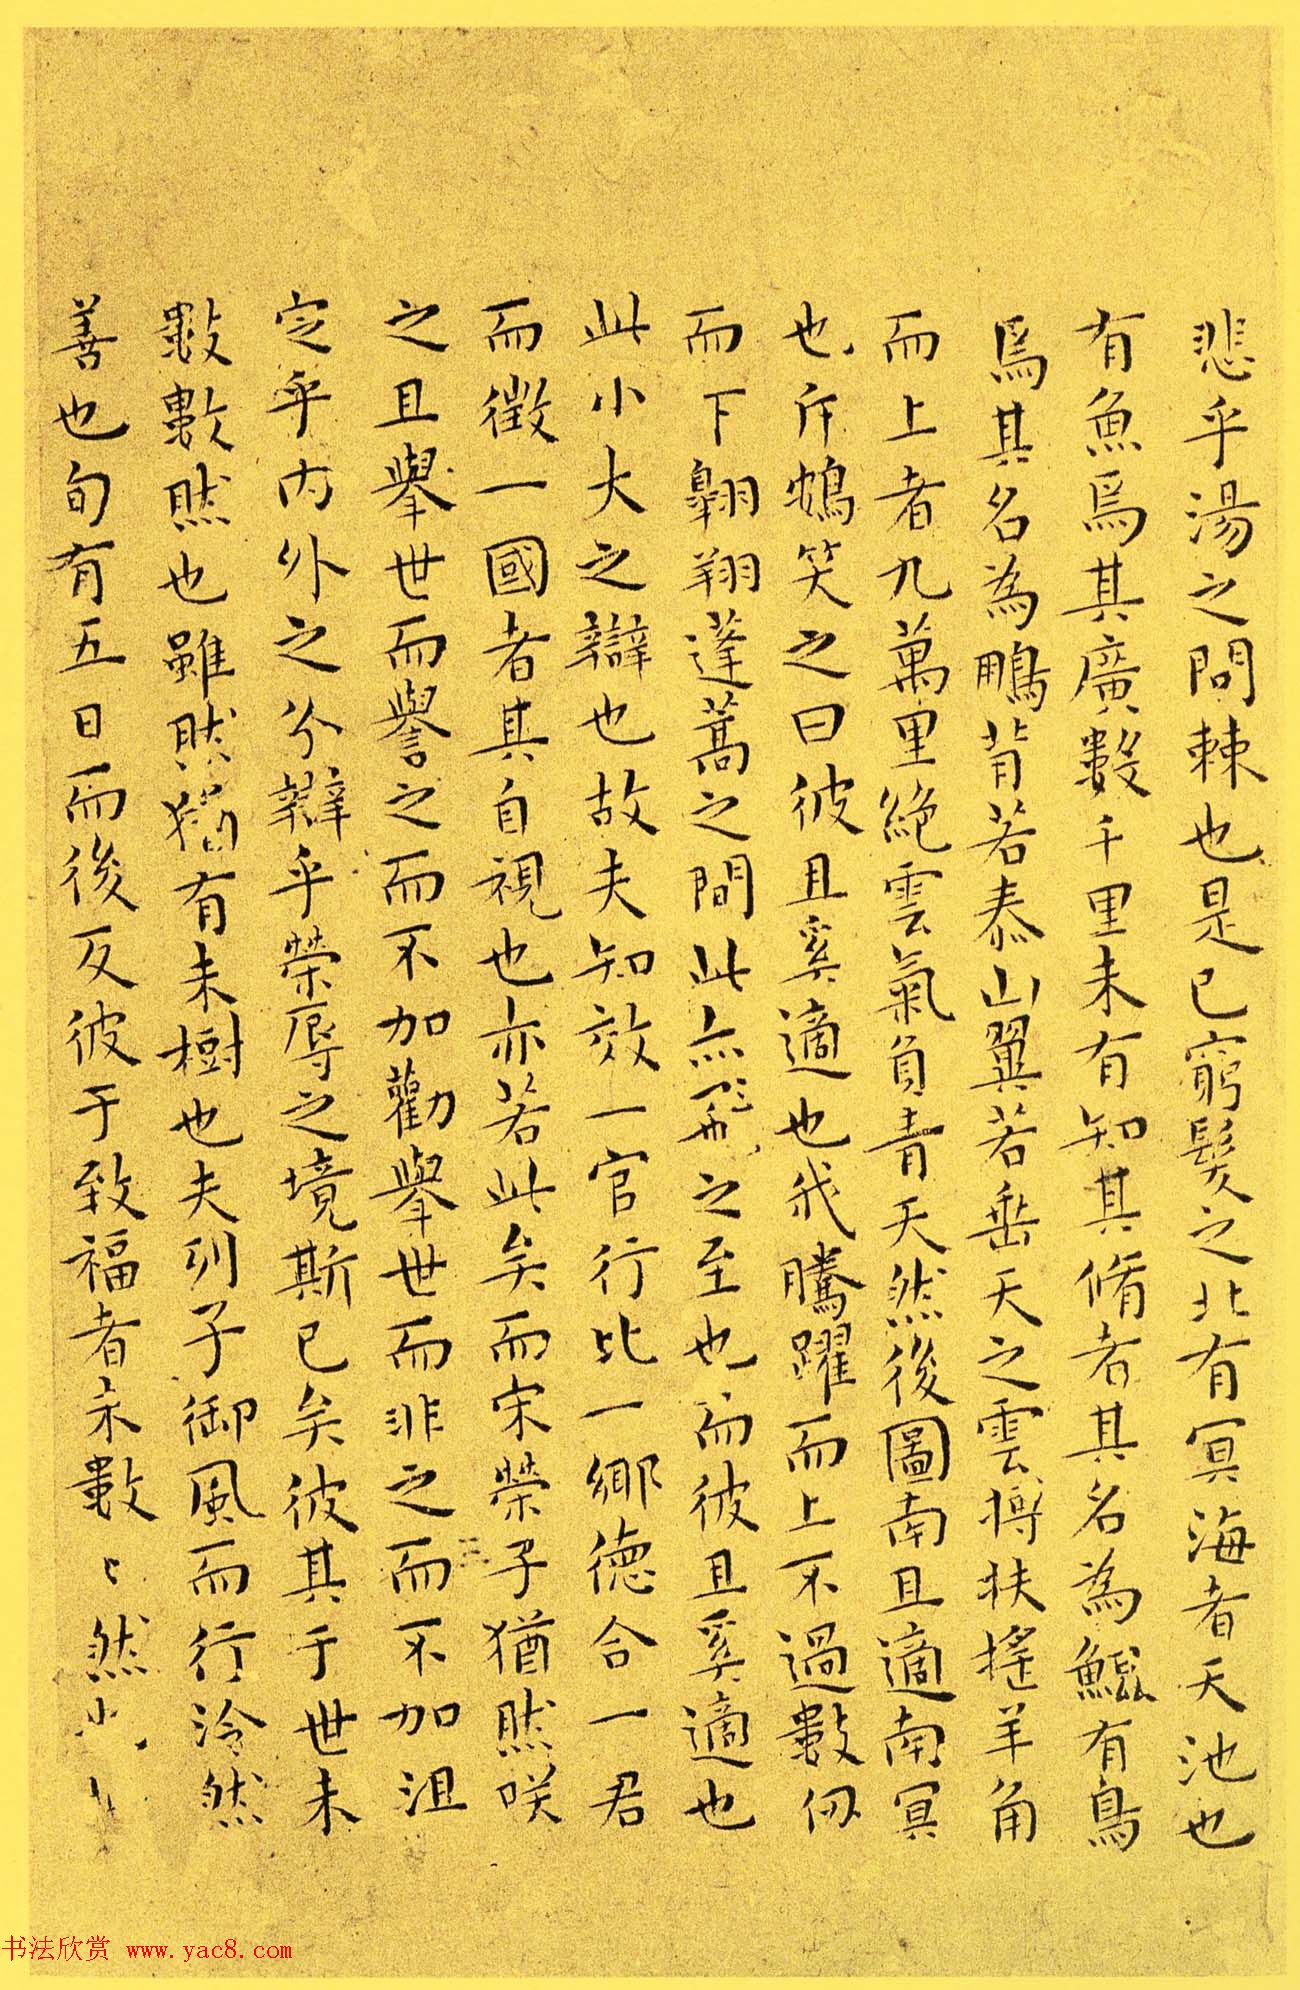 悲乎湯之問棘也是已窮髮之北有冥海者天池也
有魚焉其廣數千里未有知其脩者其名為鯤有鳥
焉其名為鵬背若泰山翼若垂天之雲搏扶搖羊角
而上者九萬里絕雲氣負青天然後圖南且適南冥
也斥笑之曰彼且奚適也我騰躍而上不過數仞
而下翱翔蓬蒿之間此亦飛之至也而彼且奚適也
此小大之辯也故夫知效一官行比一鄉德合一君
而徵一國者其自視也亦若此矣而宋榮子猶然咲
之且舉世而譽之而不加勸舉世而非之而不加沮
定乎內外之分辯乎榮辱之境斯已矣彼其于世未
數數然也雖然猶有未樹也夫列子御風而行泠然
善也旬有五日而後反彼于致福者未數〻然
书法欣赏 www.yac8.com